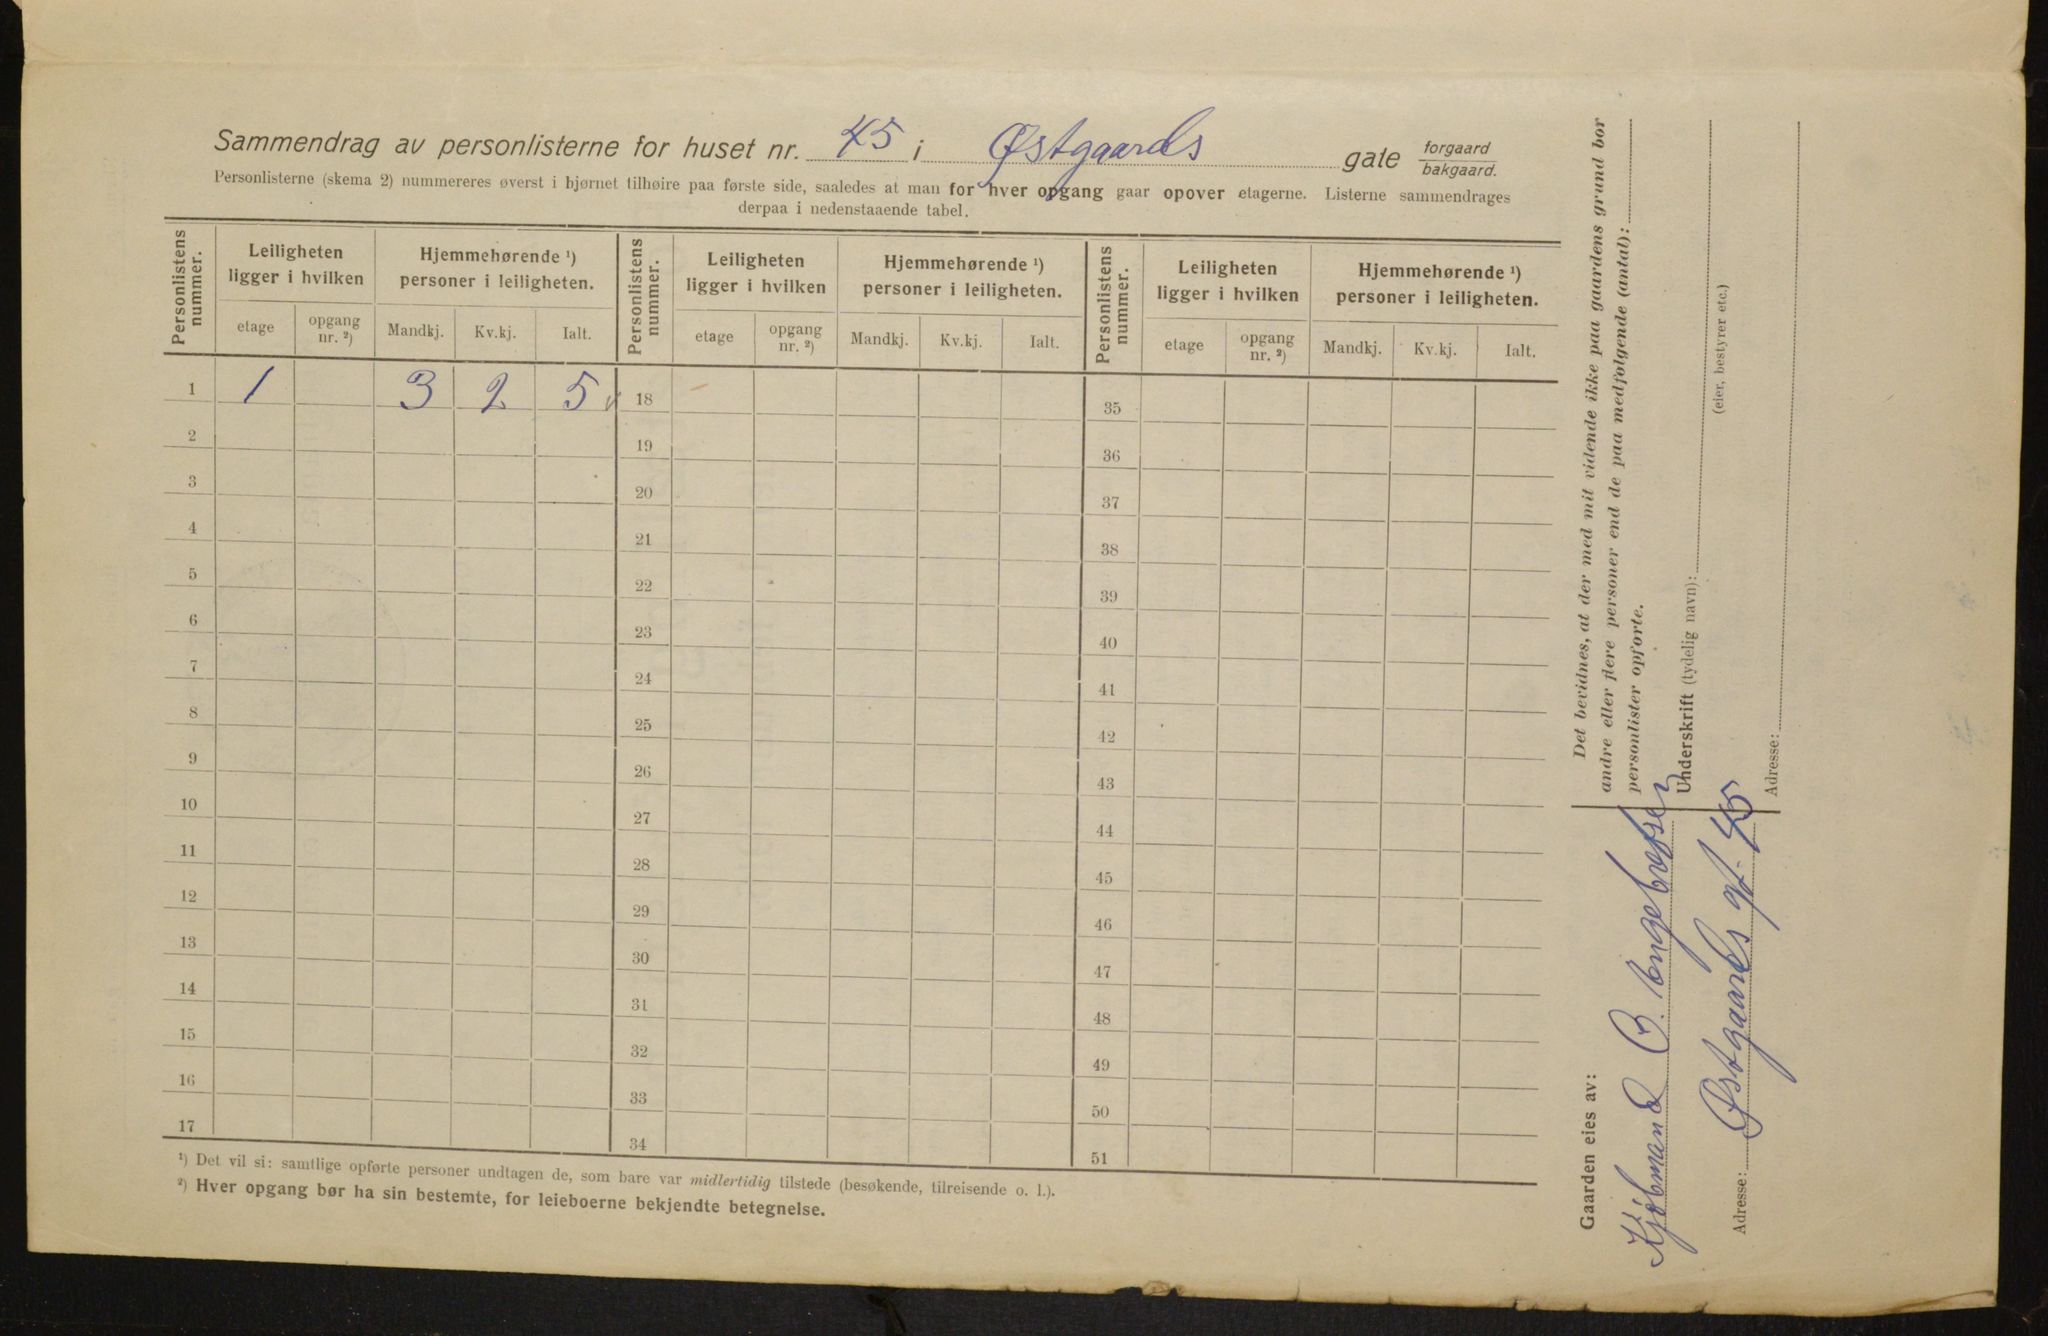 Sammendrag av personlisterne for huset nr. 45 i Østgaards gate forgaard
bakgaard.
Personlisterne (skema 2) nummereres øverst i hjørnet tilhøire paa første side, saaledes at man for hver opgang gaar opover etagerne. Listerne sammendrages
derpaa i nedenstaaende tabel.
Personlistens nummer. Leiligheten ligger i hvilken Hjemmehørende ¹) personer i leiligheten. Personlistens nummer. Leiligheten ligger i hvilken Hjemmehørende ¹) personer i leiligheten. Personlistens nummer. Leiligheten ligger i hvilken Hjemmehørende ¹) personer i leiligheten.
etage opgang nr. ²) Mandkj. Kv.kj. Ialt. etage opgang nr. ²) Mandkj. Kv.kj. Ialt. etage opgang nr. ²) Mandkj. Kv.kj. Ialt.
1 1 3 2 5 18 35
2 19 36
3 20 37
4 21 38
5 22 39
6 23 40
7 24 41
8 25 42
9 26 43
10 27 44
11 28 45
12 29 46
13 30 47
14 31 48
15 32 49
16 33 50
17 34 51
¹) Det vil si: samtlige opførte personer undtagen de, som bare var midlertidig tilstede (besøkende, tilreisende o. l.).
²) Hver opgang bør ha sin bestemte, for leieboerne bekjendte betegnelse.
Gaarden eies av:
Kjøbmand O. Engebretsen
Adresse: Østgaards gt. 45
Det bevidnes, at der med mit vidende ikke paa gaardens grund bor
andre eller flere personer end de paa medfølgende (antal):
personlister opførte.
Underskrift (tydelig navn):
(eier, bestyrer etc.)
Adresse: